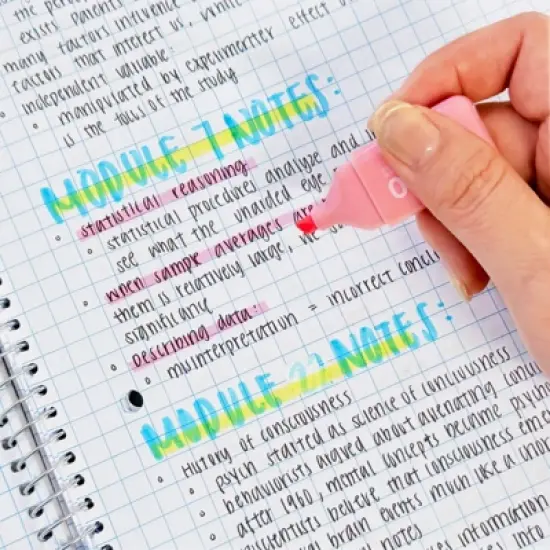 the per
exists parents
many factors influence
factors that interest us, while
• independent variable:
• manipulated by experimenter effect o
is the focus of the study
MODULE 7 NOTES:
• statistical reasoning:
• statistical procedures analyze and
see what the unaided eye
• when sample averages are
them is relatively large, we
significance
• Describing data:
• misinterpretation = incorrect conclu
MODULE 22 NOTES:
• History of consciousness
• psych started as science of consciousness
• behaviorists argued about alienating conc
• after 1960, mental concepts became psych
scientists believe that consciousness eme
brain events much like a chor
notes
information
into